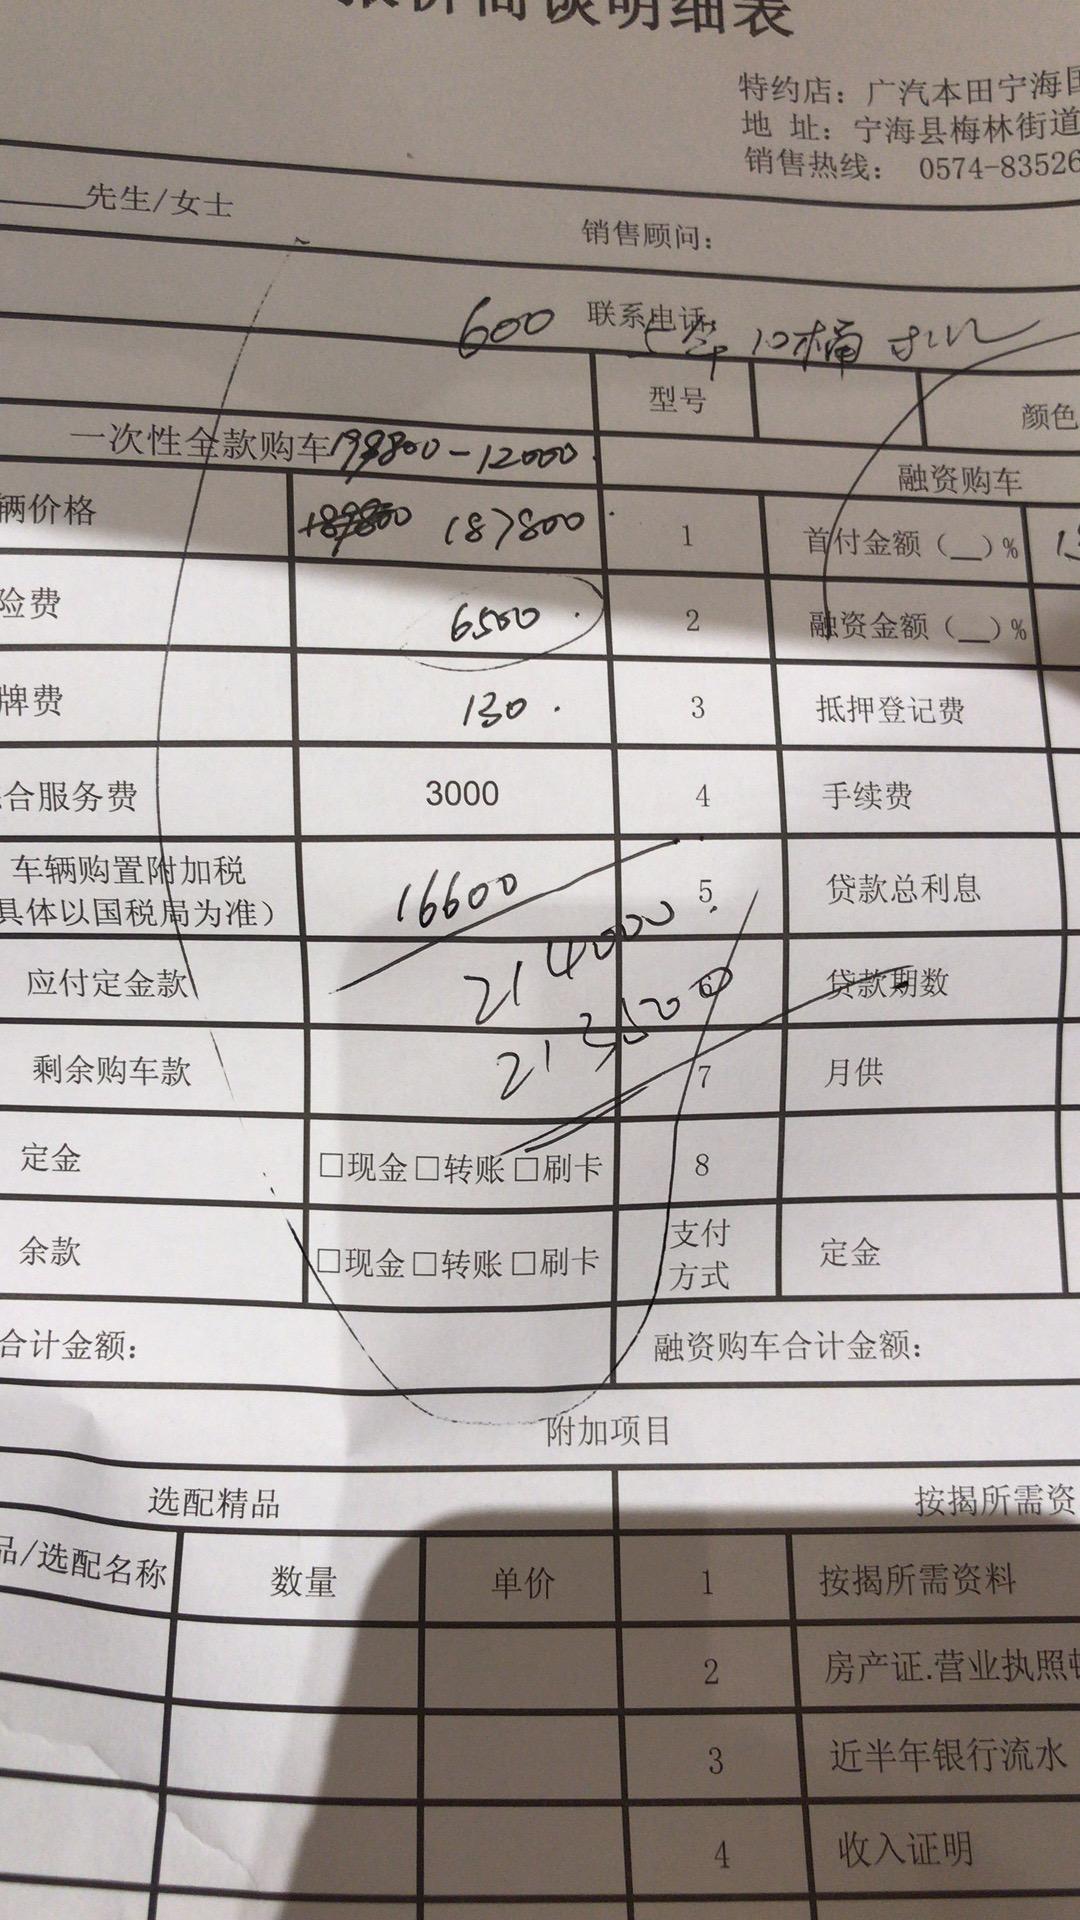 报价商谈明细表
特约店：广汽本田宁海
地 址：宁海县梅林街道
销售热线： 0574-83526
先生/女士
销售顾问：
600 联系电话
10桶
型号
颜色
一次性全款购车 198800-12000
融资购车
辆价格 187800 1 首付金额（__）%
险费 6500 2 融资金额（__）%
牌费 130 3 抵押登记费
合服务费 3000 4 手续费
车辆购置附加税
具体以国税局为准） 16600 5 贷款总利息
应付定金款 214000 贷款期数
剩余购车款 213500 7 月供
定金 □现金□转账□刷卡 8
余款 □现金□转账□刷卡 支付方式 定金
合计金额： 融资购车合计金额：
附加项目
选配精品 按揭所需资
品/选配名称 数量 单价 1 按揭所需资料
2 房产证.营业执照
3 近半年银行流水
4 收入证明